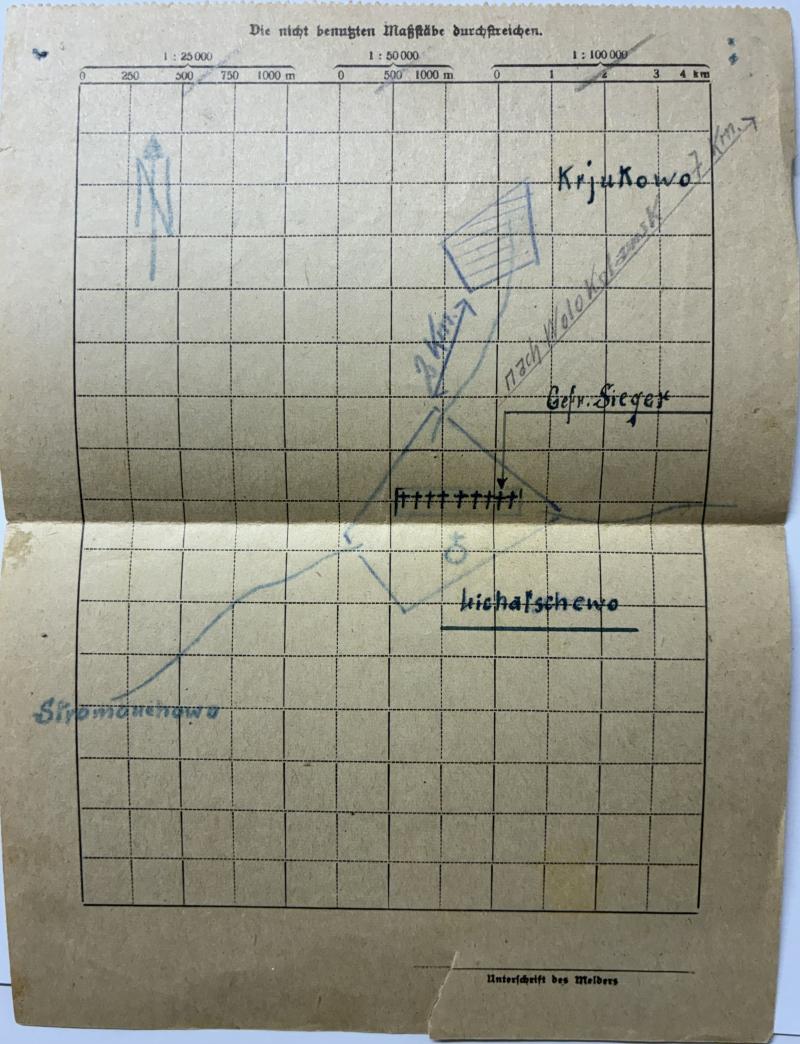 Die nicht benutzten Maßstäbe durchstreichen.
1 : 25 000 1 : 50 000 1 : 100 000
0 250 500 750 1000 m 0 500 1000 m 0 1 2 3 4 km
N
Krjukowo
nach Wolokolamsk 7 Km.
2 Km.
Gefr. Sieger
Lichatschewo
Unterschrift des Melders